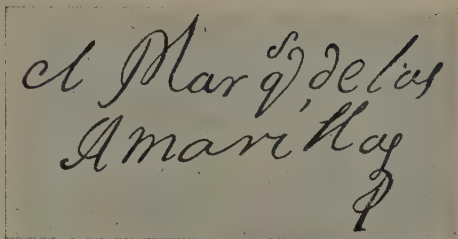 el Marqs de las
Amarillas